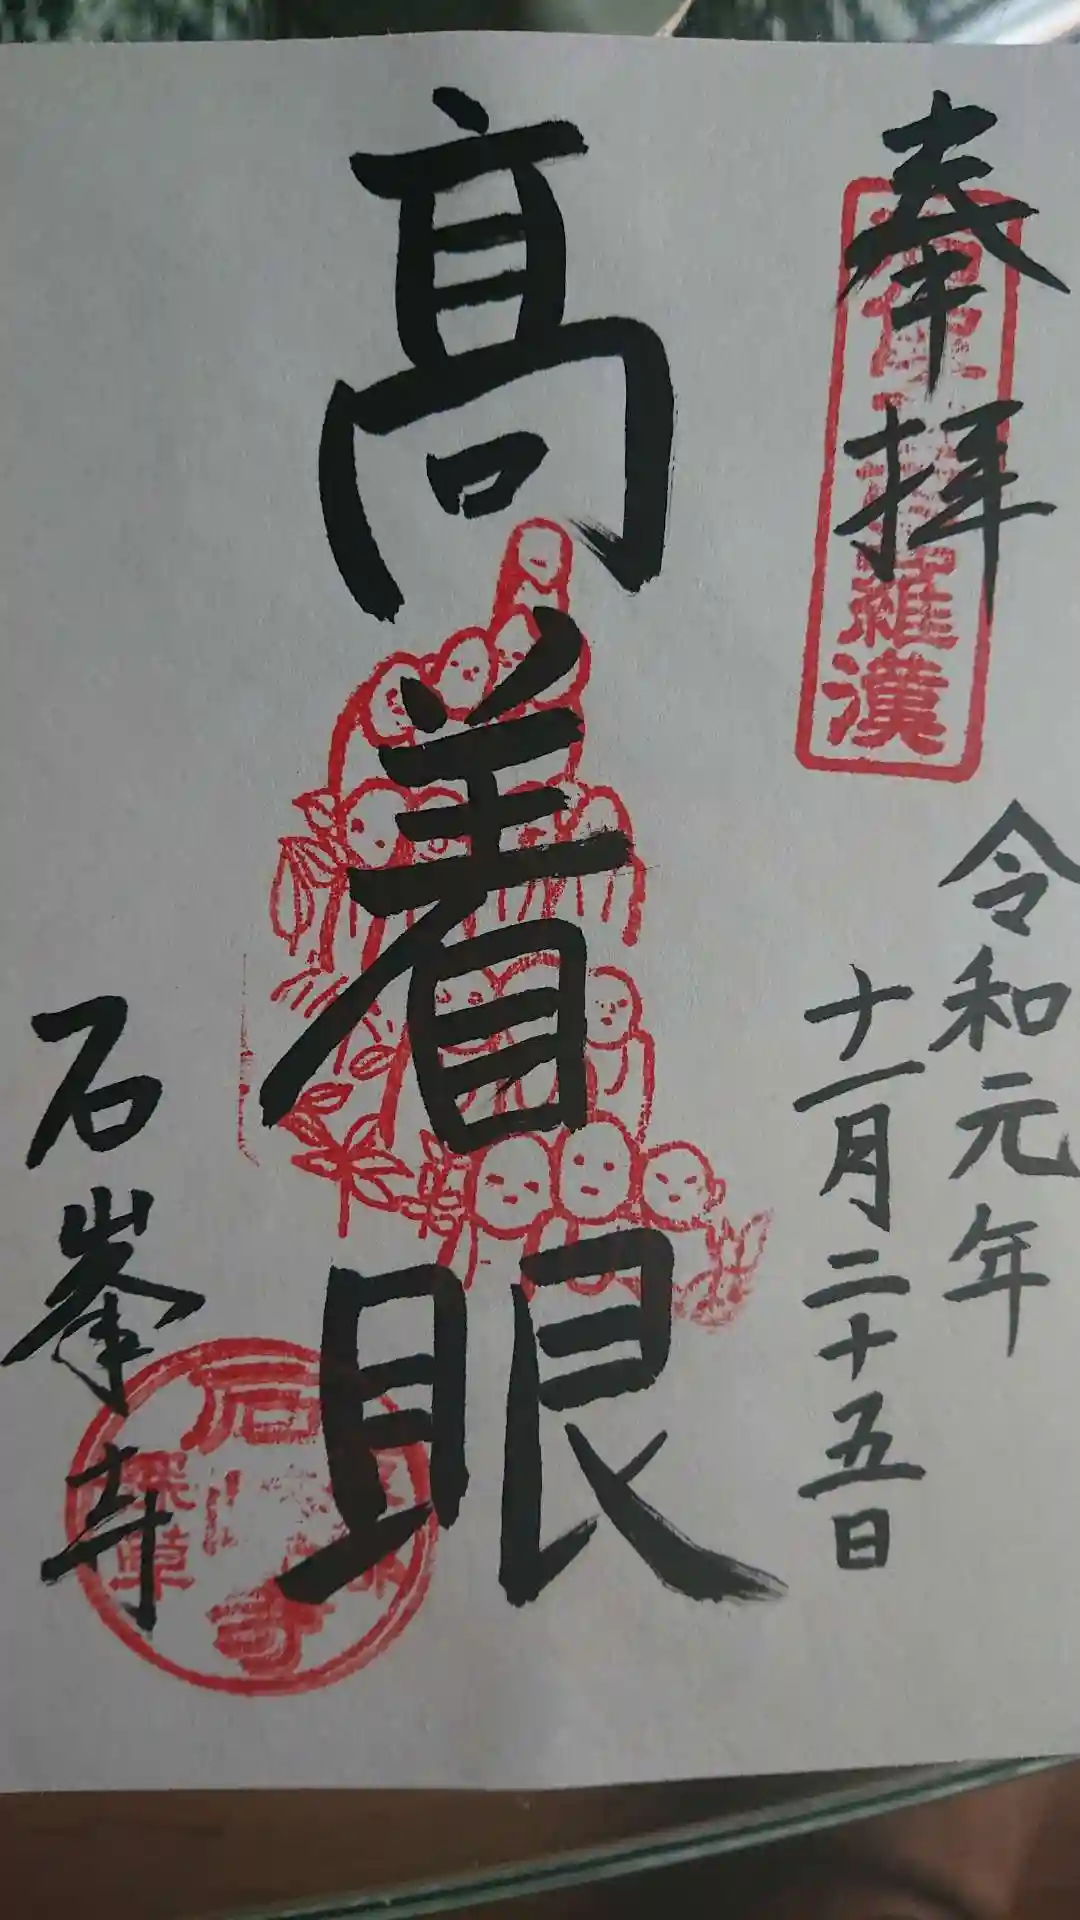 奉拝
羅漢
令和元年
十一月二十五日
髙着眼
石峯寺
石峰寺
深草